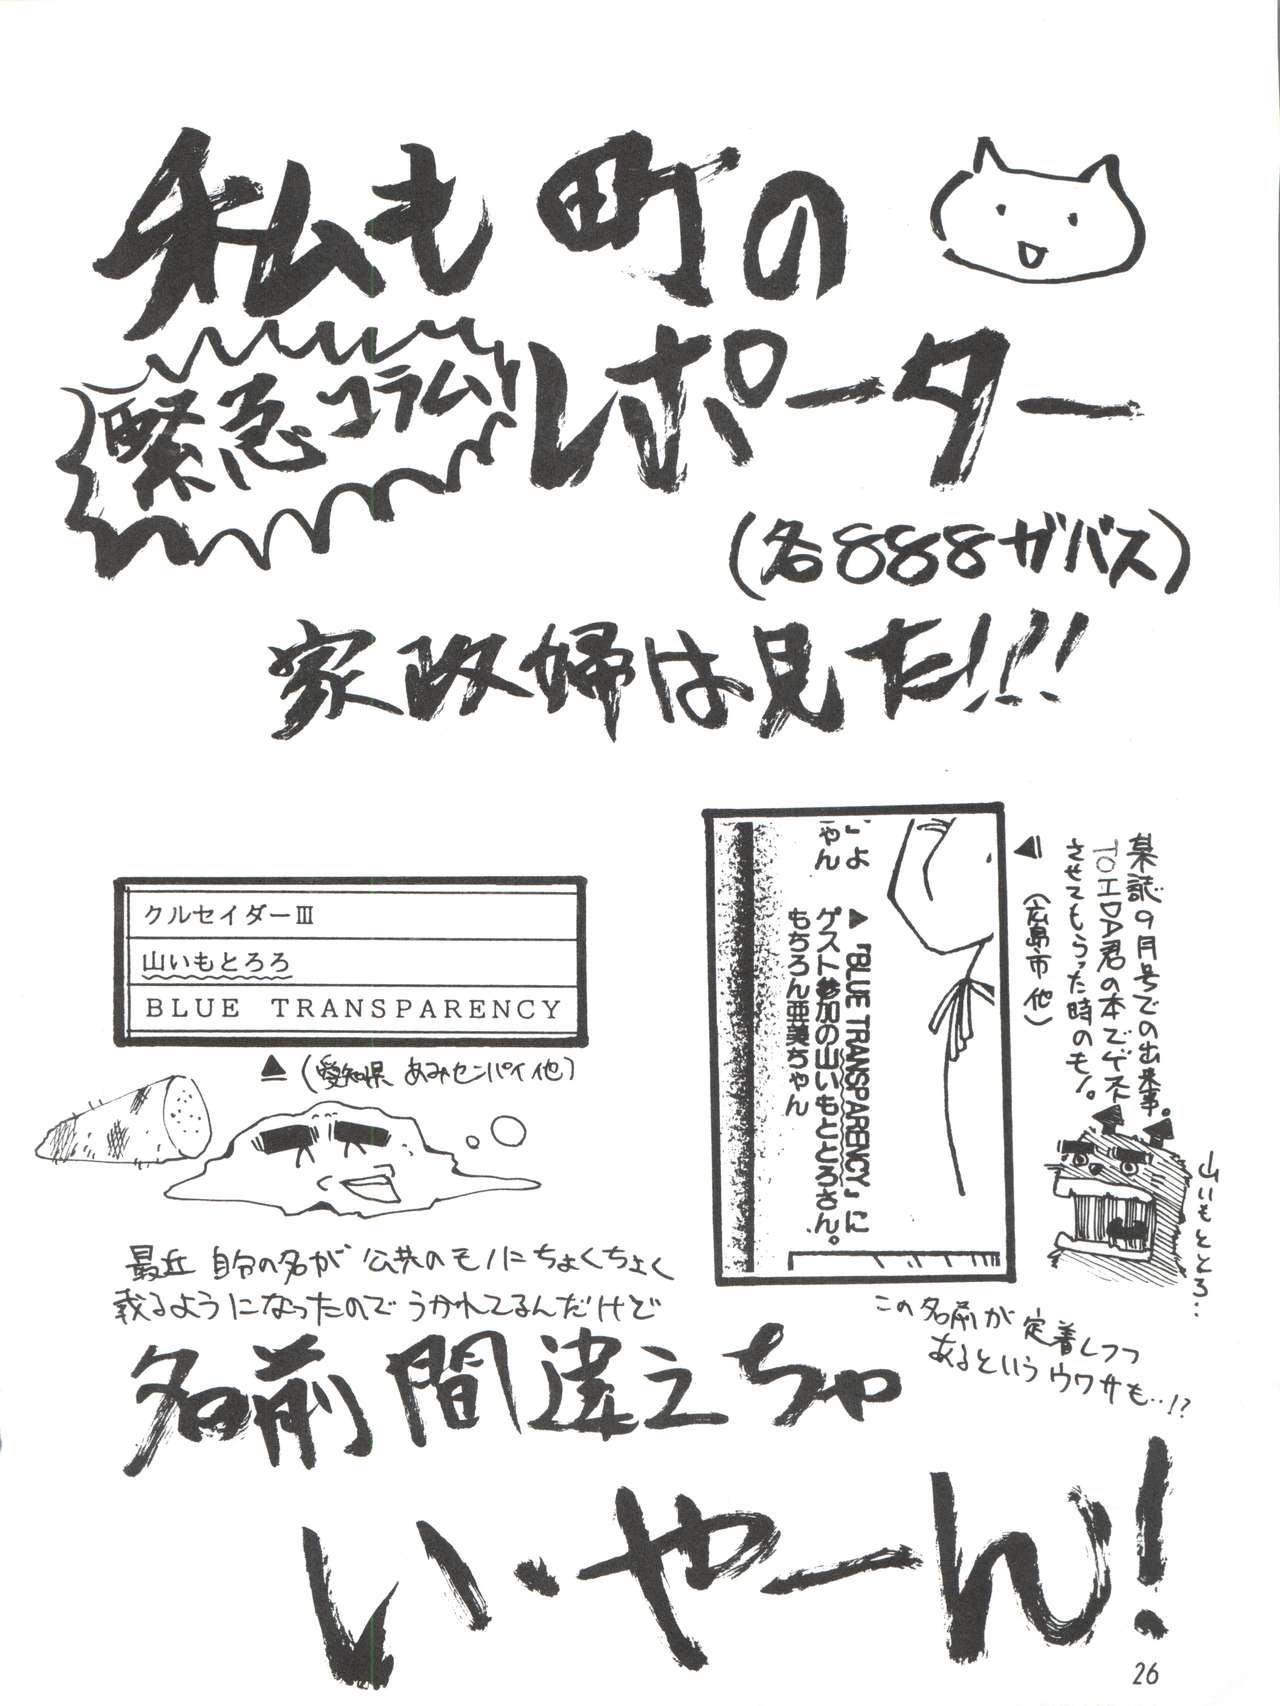 私も町の
レポーター
緊急コラム
(各888ガバス)
家政婦は見た!!!
某誌9月号での出来事。
TOエDA君の本でゲスト
させてもらった時のモノ。
(広島市 他)
」よ
ゃん
▲『BLUE TRANSPARENCY』に
ゲスト参加の山いもととろさん。
もちろん亜美ちゃん
クルセイダーⅢ
山いもとろろ
BLUE TRANSPARENCY
▲(愛知県 あみセンパイ他)
山いもととろ…
この名前が定着しつつ
あるというウワサも…!?
最近 自分の名が公共のモノにちょくちょく
載るようになったのでうかれてるんだけど
名前間違えちゃ
い・やーん!
26